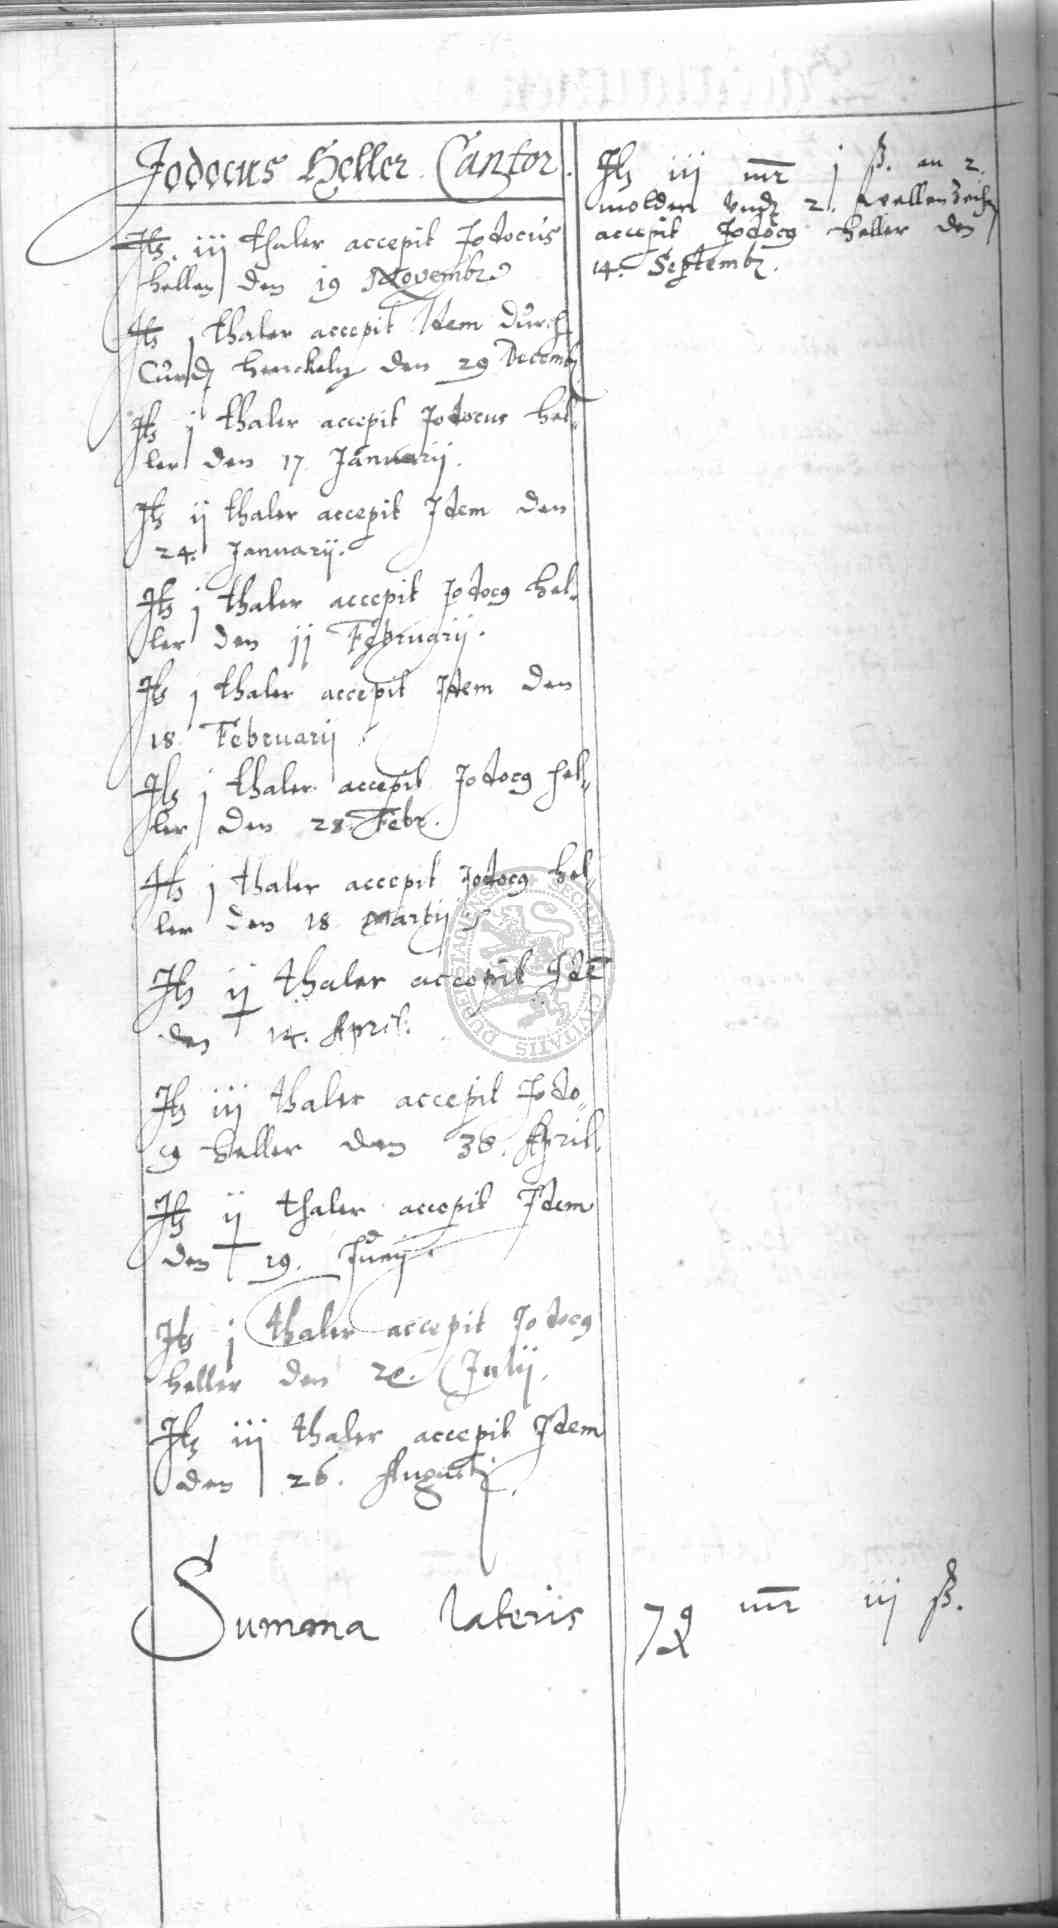 Jodocus Heller Cantor.
Itz. iij thaler accepit Jodocus
Heller den 19 Novembr.
Itz j thaler accepit Idem durch
Curdt Henckeln den 29 Decemb.
Itz j thaler accepit Jodocus Hel-
ler den 17 Januarij.
Itz ij thaler accepit Idem den
24. Januarij.
Itz j thaler accepit Jodocg Hel-
ler den jj Februarij.
Itz j thaler accepit Idem den
18. Februarij
Itz j thaler accepit Jodocg Hel-
ler den 28. Febr.
Itz j thaler accepit Jodocg Hel-
ler den 18 Martij
Itz ij thaler accepit Idē
den 14. April.
Itz iij thaler accepit Jodo-
cg Heller den 30. April.
Itz ij thaler accepit Idem
den 19. Junij.
Itz j thaler accepit Jodocg
Heller den Julij.
Itz iij thaler accepit Idem
den 26. Augusti.
Itz iij mr j ß. an 2.
molder vndt 2.
accepit Jodocg Heller den
14. Septemb.
Summa lateris mr iij ß.
SECRETUM CIVITATIS DUDERSTADENSIS